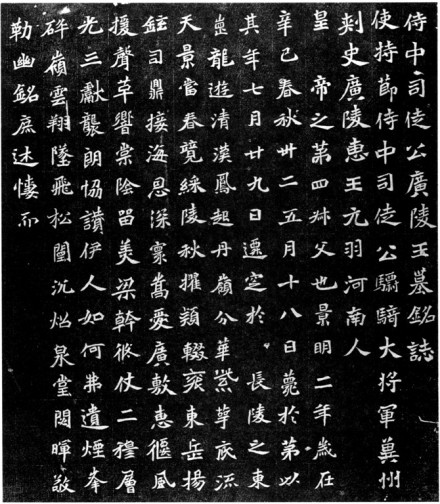 侍中司徒公廣陵王墓銘誌
使持節侍中司徒公驃騎大將軍冀州
刺史廣陵惠王元羽河南人
皇帝之第四叔父也景明二年歲在
辛巳春秋卅二五月十八日薨於第以
其年七月廿九日遷窆於長陵之東
崗龍遊清漢鳳起丹嶺分華紫萼底流
天景當春競綵陵秋擢穎輟寀東岳揚
鉉司鼎接海恩深寮嵩愛廣敷惠偃風
援聲革響棠陰留美梁幹俄仗二穆層
光三獻襲朗協讚伊人如何弗遺煙峯
碎嶺雲翔墜飛松闈沉炤泉堂閟暉敬
勒幽銘庶述悽而